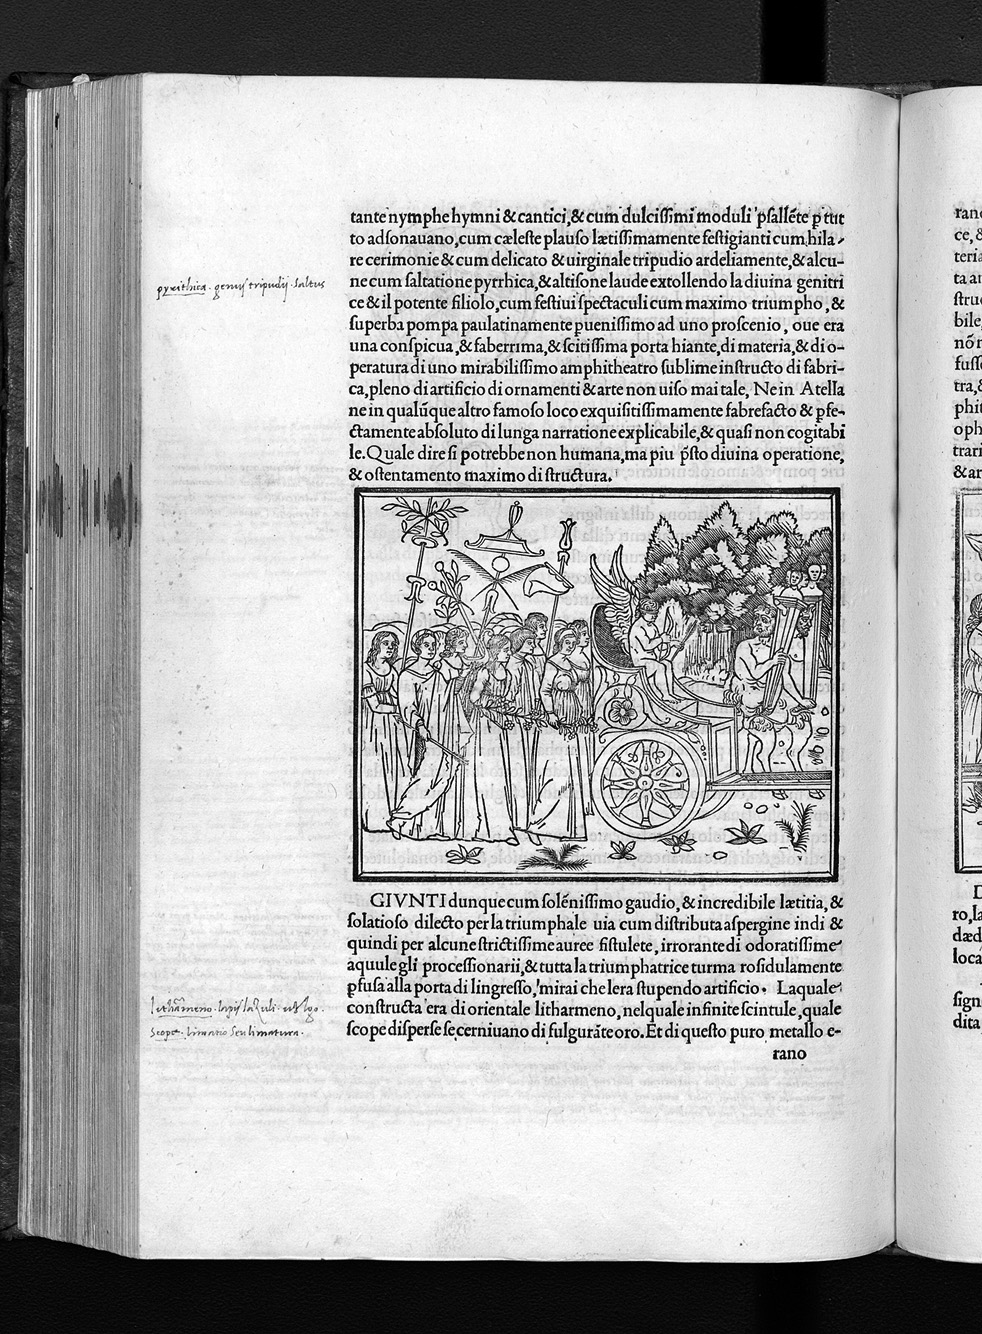 tante nymphe hymni & cantici, & cum dulcissimi moduli psallēte p tut
to adsonauano, cum cæleste plauso lætissimamente festigianti cum hila-
re cerimonie & cum delicato & uirginale tripudio ardeliamente, & alcu-
ne cum saltatione pyrrhica, & altisone laude extollendo la diuina genitri
ce & il potente filiolo, cum festiui spectaculi cum maximo triumpho, &
superba pompa paulatinamente puenissimo ad uno proscenio, oue era
una conspicua, & faberrima, & scitissima porta hiante, di materia, & di o-
peratura di uno mirabilissimo amphitheatro sublime instructo di fabri-
ca, pleno di artificio di ornamenti & arte non uiso mai tale, Ne in Atella
ne in qualūque altro famoso loco exquisitissimamente fabrefacto & pfe-
ctamente absoluto di lunga narratione explicabile, & quasi non cogitabi
le. Quale dire si potrebbe non humana, ma piu p̄sto diuina operatione,
& ostentamento maximo di structura.
pyrithica. genus tripudij. saltus
GIVNTI dunque cum solēnissimo gaudio, & incredibile lætitia, &
solatioso dilecto per la triumphale uia cum distributa aspergine indi &
quindi per alcune strictissime auree fistulete, irrorante di odoratissime
aquule gli processionarii, & tutta la triumphatrice turma rosidulamente
pfusa alla porta di lingresso, mirai che lera stupendo artificio. Laquale
constructa era di orientale litharmeno, nelquale infinite scintule, quale
scope disperse se cerniuano di fulgurāte oro. Et di questo puro metallo e-
rano
lapis lazuli
scope. limatura.
rano
ce, &
teria
ta an
struc
bile,
nō r
fusse
tra, &
phit
oph
trari
& ar
D
ro, la
dæd
loca
sign
dita